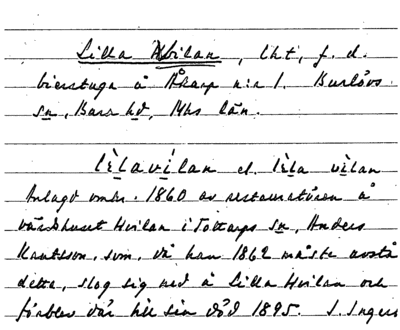 Lilla Hvilan, lht, f. d.
bierstuga å Åkarp n:r 1. Burlövs
sn, Bara hd, Mhs län.
lèlavílan el. lèla vìlan
Anlagd omkr. 1860 av restauratören å
värdshuset Hvilan i Tottarps sn, Anders
Knutsson, som, då han 1862 måste avstå
detta, slog sig ned å Lilla Hvilan och
förblev där till sin död 1895. I. Ingers